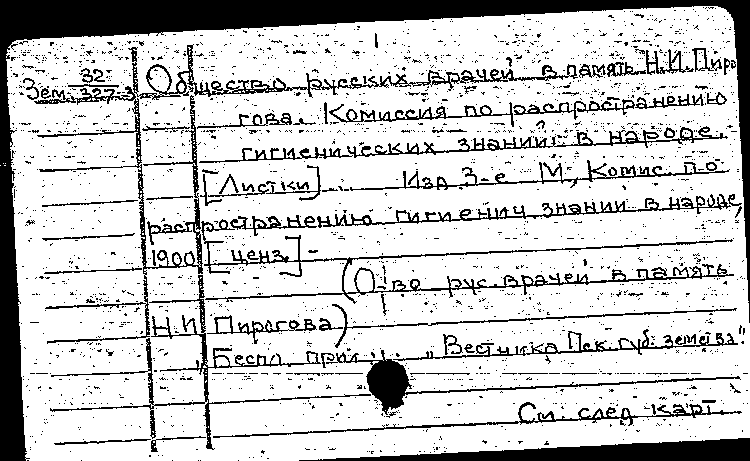 32
Зем. 327-3
Общество русских врачей в память Н.И. Пиро
гова. Комиссия по распространению
гигиенических знаний в народе.
[Листки]... Изд 3-е М, Комис. по
распространению гигиенич знаний в народе,
1900 [ценз.] -
(О-во рус. врачей в память
Н.И Пирогова)
„Беспл. прил. „Вестника Пск. губ. земства".
См. след карт.